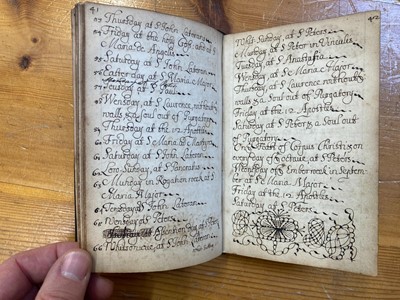 41
53 Thursday at St John Lateran
54 Friday at the holy Cross, and at S
Maria de Angelis
55 Saturday at St John Lateran
56 Easter day at St Maria Major
57 Tuesday at St Paul
58 Wensday at St Laurence without ye
walls & a soul out of Purgatory
59 Thursday at the 12 Apostles
60 Friday at St Maria de Martyrs
61 Saturday at St John Lateran
62 Low Sunday at St Pancratia
63 Munday in Rogation week at S
Maria Major
64 Tuesday at St John Lateran
65 Wensday at St Peters
66 Whitson eve at St John Lateran
42
Whit Sunday at St Peters
Munday at St Peter in Vincules
Tuesday at St Anastasia
Wensday at St Maria Major
Thursday at St Laurence without ye
walls & a Soul out of Purgatory
Friday at the 12 Apostles
Saturday at St Peters & a Soul out
of Purgatory
On ye Feast of Corpus Christi & on
every day of ye Octave at St Peters
Wensday of Ember week in Septem-
ber at St Maria Major
Friday at the 12 Apostles
Saturday at St Peters